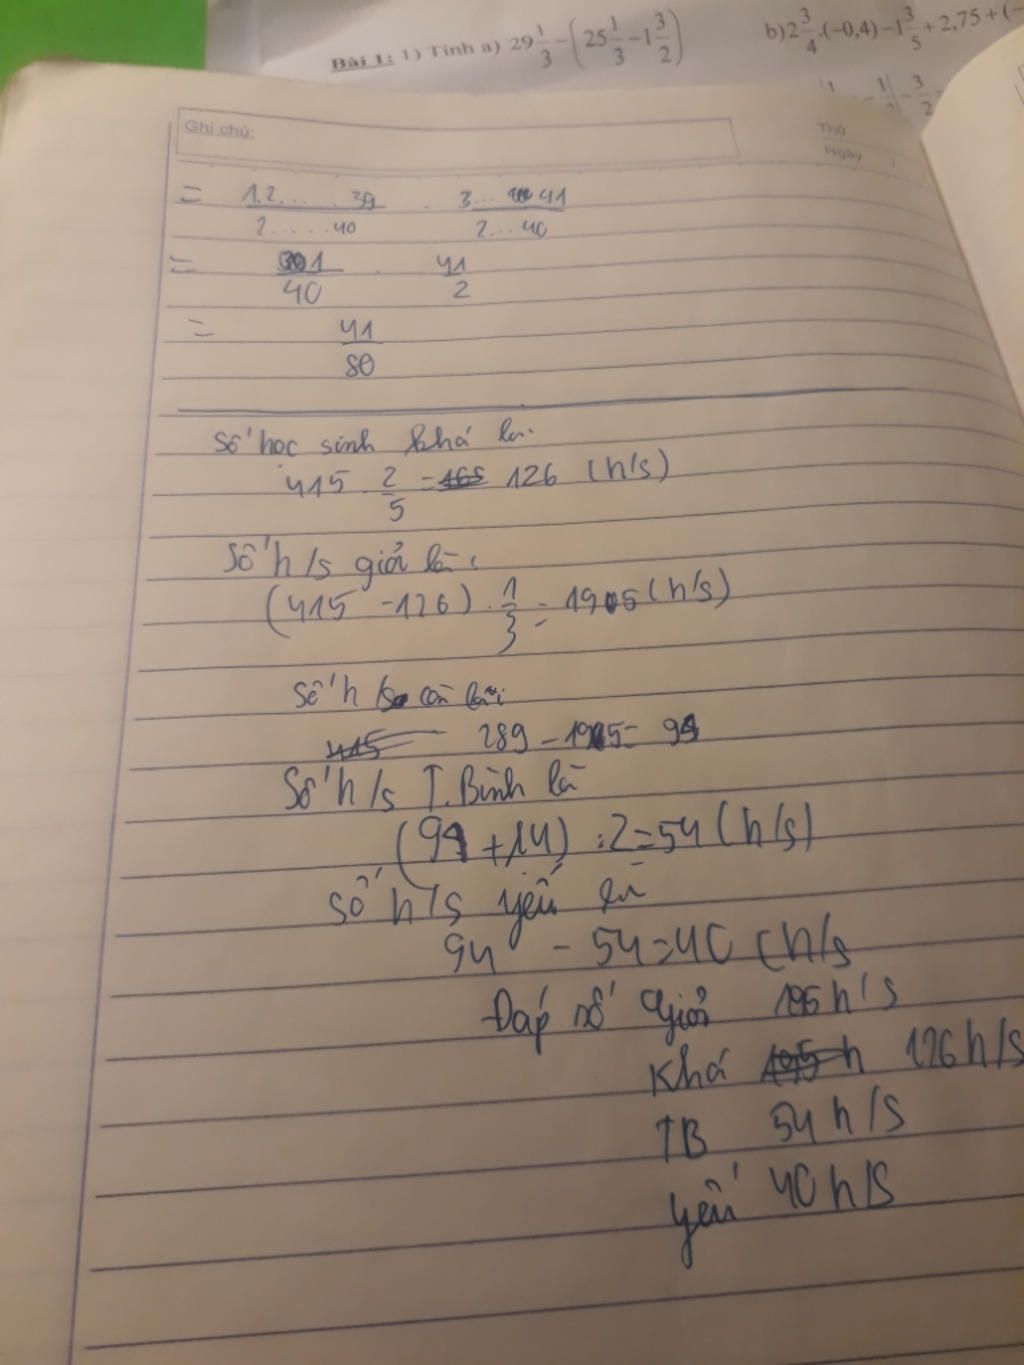 Bài 1: 1) Tính a) 29 1/3 - (25 1/3 - 1 3/2)
b) 2 3/4.(-0,4) - 1 3/5 + 2,75 + (-
1/ - 1/ | - 3/2
Ghi chú:
Thứ
Ngày
= 1.2.....39 / 2.....40 . 3...41 / 2...40
= 1/40 . 41/2
= 41/80
Số học sinh khá là.
415 . 2/5 = 126 (h/s)
Số h/s giỏi là:
(415 - 126) . 1/3 = 195 (h/s)
Số h/s còn lại:
289 - 195 = 94
Số h/s T.Bình là
(94 + 14) : 2 = 54 (h/s)
Số h/s yếu là
94 - 54 = 40 (h/s
Đáp số Giỏi 195 h/s
Khá 126 h/s
TB 54 h/s
yếu 40 h/s